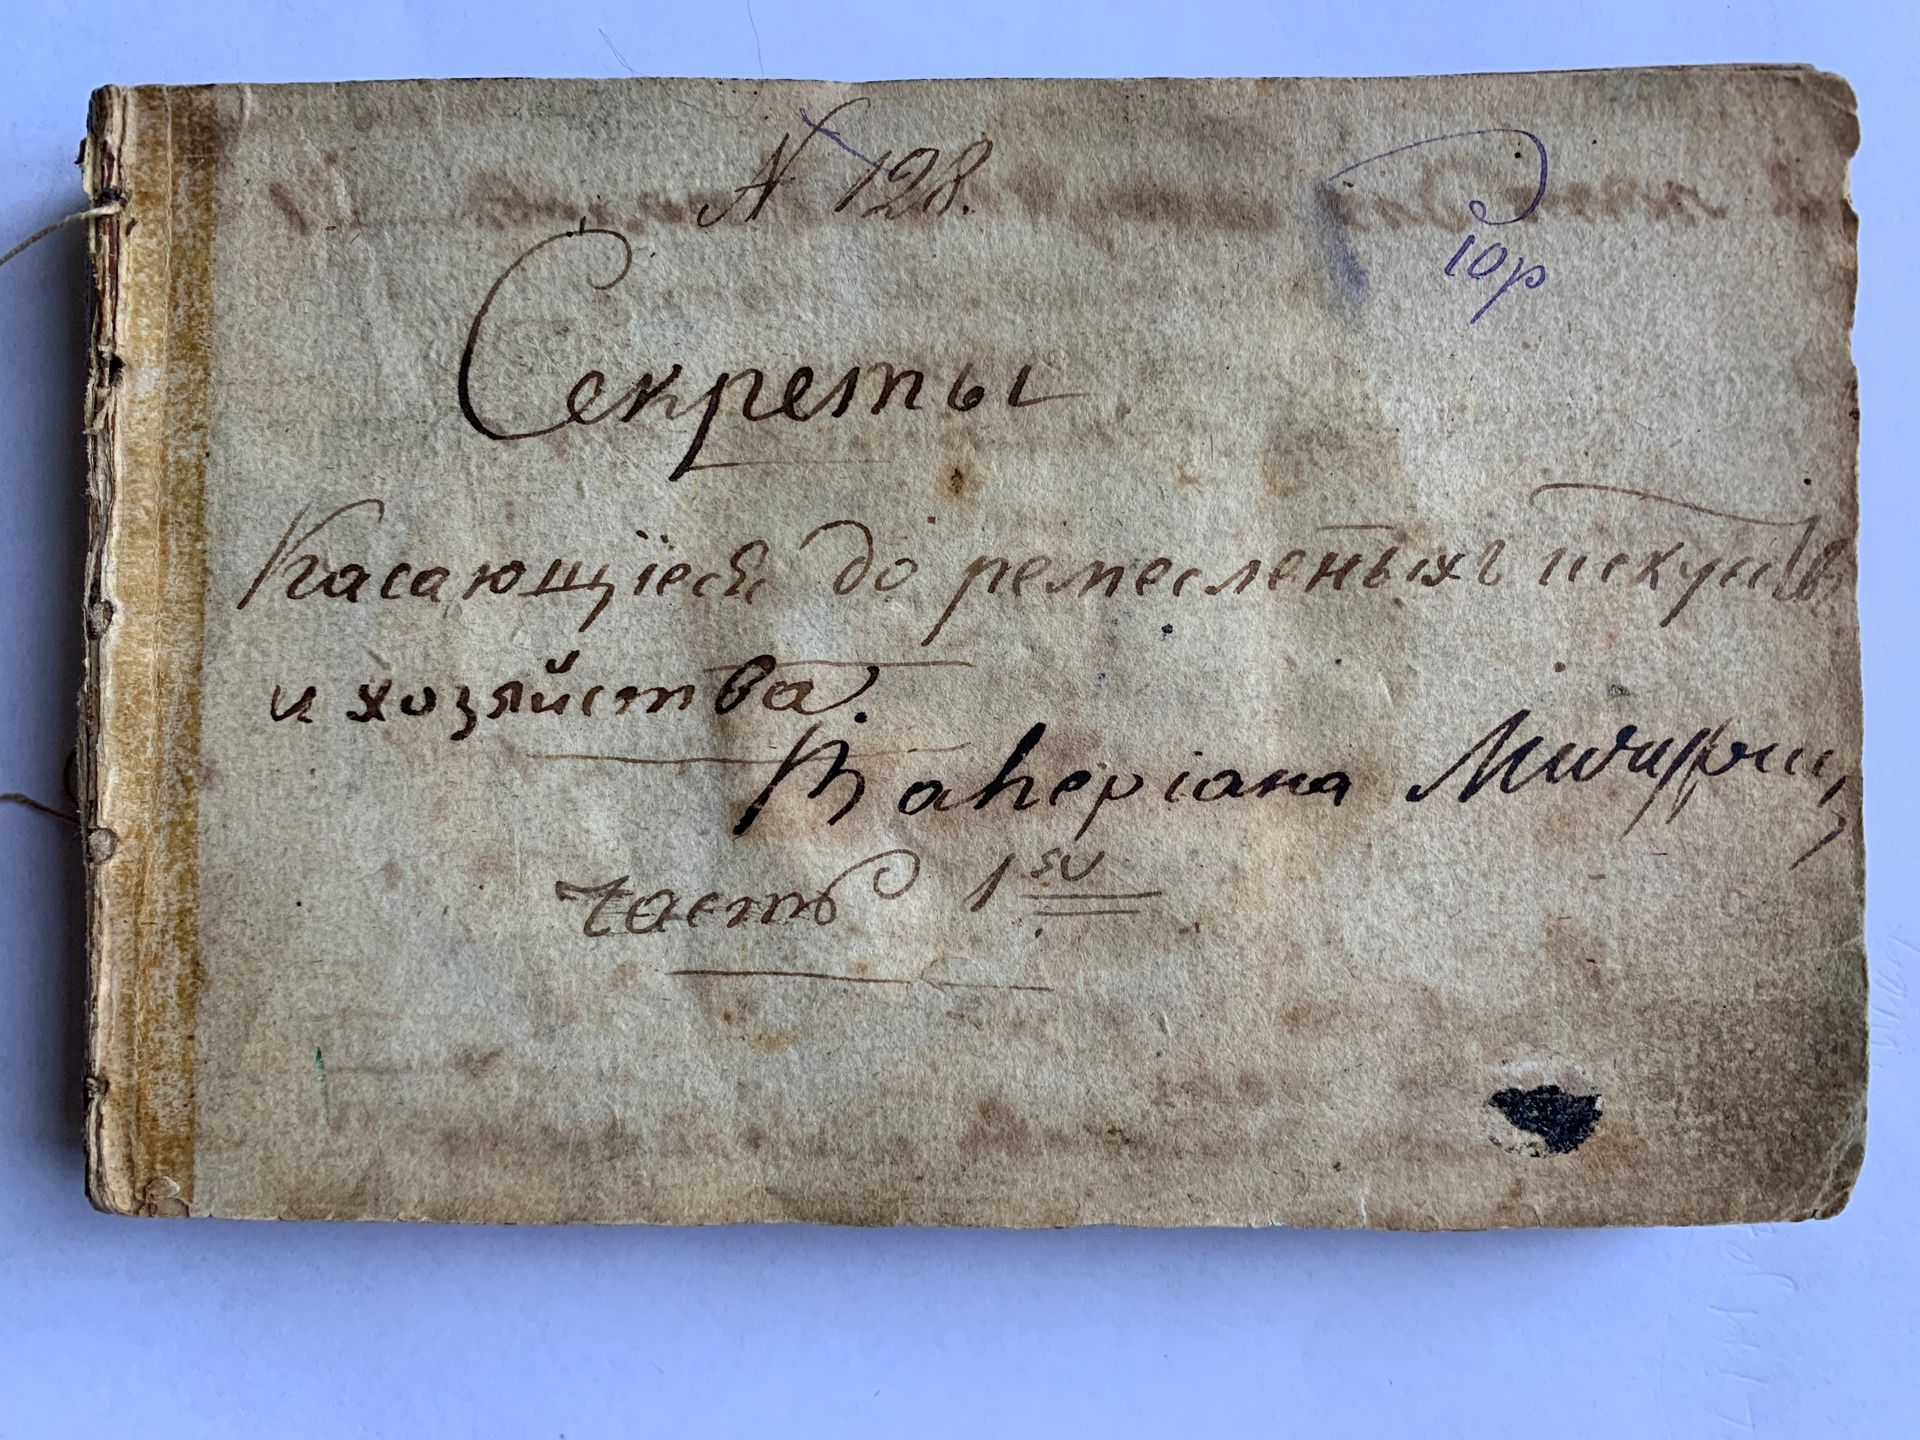 № 128.
10р
Секреты
Касающіесѧ до ремесленыхъ искуствъ
и хозяйства.
Валеріана
часть 1я